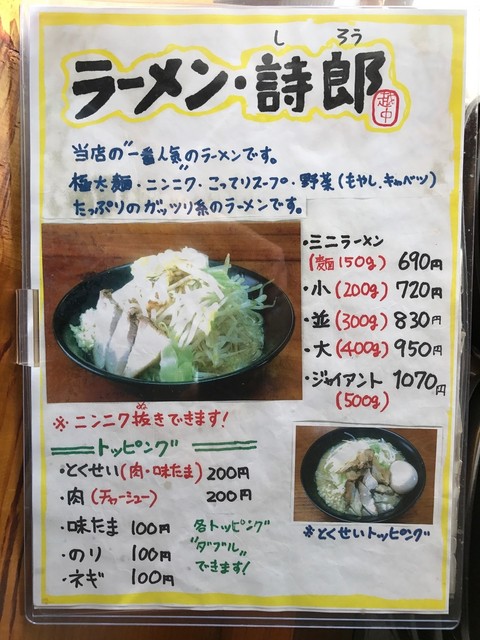 しろう
ラーメン・詩郎
越中
当店の"一番人気"のラーメンです。
極太麺・ニンニク・こってりスープ・野菜(もやし、キャベツ)
たっぷりのガッツリ系のラーメンです。
・ミニラーメン
(麺150g) 690円
・小(200g) 720円
・並(300g) 830円
・大(400g) 950円
・ジャイアント 1070円
(500g)
※ニンニク抜きできます!
ぬ
トッピング
・とくせい(肉・味たま) 200円
・肉(チャーシュー) 200円
・味たま 100円
・のり 100円
・ネギ 100円
各トッピング
"ダブル"
できます!
※とくせいトッピング